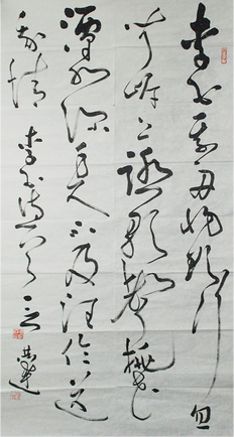 李白乘舟將欲行忽
聞岸上踏歌聲桃花
潭水深千尺不及汪倫送
我情 李白詩一首